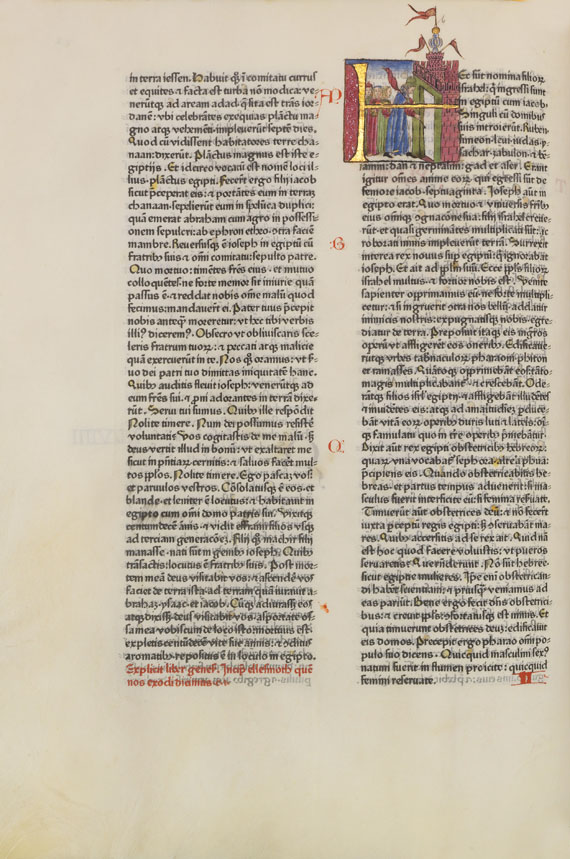 in terra iessen. Habuit qꝫ ĩ comitatu currus
et equites: ⁊ facta est turba nõ modica. ve-
nerũtqꝫ ad aream adad. q̃ sita est trãs ior-
danẽ: vbi celebrãtes exequias plãctu ma-
gno atqꝫ vehemẽti impleuerũt septẽ dies.
Quod cũ vidissent habitatores terre cha-
naan: dixerũt. Plãctus magnus est iste e-
giptijs. Et idcirco vocatũ est nomẽ loci il-
lius. plãctus egipti. Fecerũt ergo filij iacob
sicut p̃ceperat eis: ⁊ portãtes eum in terrã
chanaan: sepelierũt eum in spelũca duplici:
quã emerat abraham cum agro in possessi-
onem sepulcri: ab ephron etheo ↄtra faciẽ
mambre. Reuersusqꝫ ẽ ioseph in egiptũ cũ
fratribꝰ suis ⁊ oĩni comitatu: sepulto patre.
Quo mortuo: timẽtes fr̃es eiꝰ. et mutuo
colloquẽtes: ne forte memor sit iniurie quã
passus ẽ. ⁊ reddat nobis om̃e malũ quod
fecimus: mandauerũt ei. Pater tuus p̃cepit
nobis anteqꝫ moreretur: vt hec tibi verbis
illiꝰ diceremꝰ. Obsecro vt obliuiscaris sce-
leris fratrum tuoꝝ: ⁊ peccati atqꝫ malicie
quã exercuerũt in te. Nos qꝫ oramus: vt ẜ-
uo dei patri tuo dimittas iniquitatẽ hanc.
Quibꝰ auditis fleuit ioseph: venerũtqꝫ ad
eum fr̃es sui. ⁊ p̱ni adorantes in terrã dixe-
rũt. Serui tui sumus. Quibꝰ ille respõdit
Nolite timere. Num dei possumus resistẽ
voluntati? Vos cogitastis de me malũ: ẜꝫ
deus vertit illud in bonũ: vt exaltaret me
sicut in p̃ntiaꝝ cernitis: ⁊ saluos facẽt mul-
tos pp̃los. Nolite timere. Ego pascã vos:
⁊ paruulos vestros. Cõsolatusqꝫ ẽ eos. et
blande ⁊ leniter ẽ locutus: ⁊ habitauit in
egipto cum om̃i domo patris sui. Vixitqꝫ
centumdecẽ ãnis. ⁊ vidit effraim filios vsqꝫ
ad terciam generacõeꝫ. Filij qꝫ machir filij
manasse. nati sũt in genibꝰ ioseph. Quibꝰ
trãsactis: locutus ẽ fratribꝰ suis. Post mor-
tem meã deus visitabit vos: ⁊ ascendẽ vos
faciet de terra ista. ad terram quã iurauit a-
brahaꝫ. ysaac. et iacob. Cũqꝫ adiurass̃ eos
atqꝫ dixiss̃. deus visitabit vos. asportate os-
sa mea vobiscum de loco isto: mortuus est.
expletis centũdecẽ vite sue ãnis. ⁊ ↄditus
aromatibꝰ. repositus ẽ in loculo in egipto.
Explicit liber geneſ.
nos exodũ dicimus
Ec sũt nomina filioꝝ
israhel: q̃ ingressi sunt
in egiptũ cum iacob.
Singuli cũ domibus
suis introierũt. Ruben.
simeon. leui. iudas. ẏ-
sachar. zabulon. ⁊ bẽ-
iamin: dan ⁊ neptalim: gad et aser. Erant
igitur om̃es anime eoꝝ. qui egressi sunt de
femore iacob: septuaginta. Ioseph aũt in
egipto erat. Quo mortuo ⁊ vniuersis fr̃ibꝰ
eius om̃iqꝫ cognacõne sua: filij israhel creue-
rũt. et quasi germinãtes multiplicati sũt: ac
roborati nimis impleuerũt terrã. Surrexit
interea rex nouus sup̱ egiptũ: q̃ ignorabat
ioseph. Et ait ad pp̃lm suũ. Ecce pp̃ls filioꝝ
israhel multus. ⁊ forcior nobis est. Venite
sapienter opprimamus eũ: ne forte multipli-
cetur. ⁊ si ingruerit ↄtra nos bellũ. addatur
inimicis nostris: expugnatisqꝫ nobis egre-
diatur de terra. Preposuit itaqꝫ eis mgr̃os
operũ: vt affligerẽt eos oneribꝰ. Edificaue-
rũtqꝫ vrbes tabernaculoꝝ pharaoni: phiton
et ramasses. Quãtoqꝫ opprimebãt eos: tãto
magis multiplicabant̃ ⁊ crescebãt. Ode-
rãtqꝫ filios isrl̃ egiptij ⁊ affligebãt illudẽtes
⁊ inuidẽtes eis: atqꝫ ad amaritudinẽ p̱duce-
bãt vitã eoꝝ. operibꝰ duris luti ⁊ lateris: oĩ-
qꝫ famulatu quo in t̃re operibꝰ p̃mebãtur.
Dixit aũt rex egipti obstetricibꝰ hebreoꝝ:
quaꝝ vna vocabat̃ sephora. altera phua:
p̃cipiens eis. Quando obstetricabitis he-
breas. et partus tempus aduenerit: si ma-
sculus fuerit interficite eũ: si femina reseruate.
Timuerũt aũt obstetrices deũ: ⁊ nõ fecerũt
iuxta p̃ceptũ regis egipti: ẜꝫ ↄseruabãt ma-
res. Quibꝰ accersitis ad se rex ait. Quid nã
est hoc quod facere voluistis: vt pueros
seruaretis? Que r̃nderunt. Nõ sũt hebree:
sicut egiptie mulieres. Ipse enĩ obstetrican-
di habẽt scientiam: ⁊ priusqꝫ veniamus ad
eas pariũt. Bene ergo fecit dñs obstetrici-
bus: ⁊ creuit pp̃ls: ↄfortatusqꝫ est nimis. Et
quia timuerunt obstetrices deuꝫ: edificauit
eis domos. Precepit ergo pharao om̃i po-
pulo suo dicens. Quicquid masculini sexꝰ
natum fuerit in flumen proicite: quicquid
feminini reseruate.